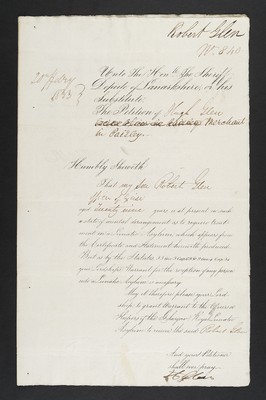 Robert Glen
Unto the Honble The Sheriff
Depute of Lanarkshire or his
Substitute
The Petition of Hugh Glen
Merchant
in Paisley
Humbly Sheweth
That my Son Robert Glen
aged Twenty nine years is at present in such
a state of mental derangement as to require treat-
ment in a Lunatic Asylum which appears from
the Certificate and Statement herewith produced
That by the Statutes
your Lordships Warrant for the reception of any person
into a Lunatic Asylum is necessary
May it therefore please your Lord-
ship to grant Warrant to the Officers &
Keepers of the Glasgow Royal Lunatic
Asylum to receive the said Robert Glen
And your Petitioner
shall ever pray